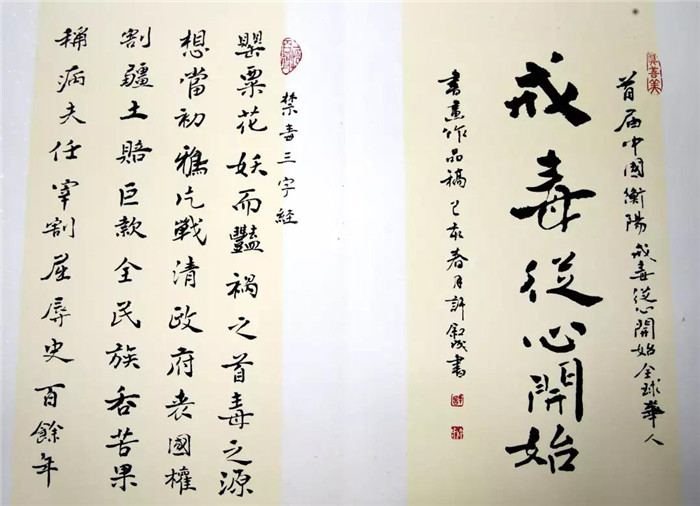 首届中國衡陽戒毒從心開始全球華人
戒毒從心開始
書畫作品稿 己亥春月許敘成書
禁毒三字經
罌粟花妖而豔禍之首毒之源
想當初鴉片戰清政府丧國權
割疆土賠巨款全民族吞苦果
稱病夫任宰割屈辱史百餘年